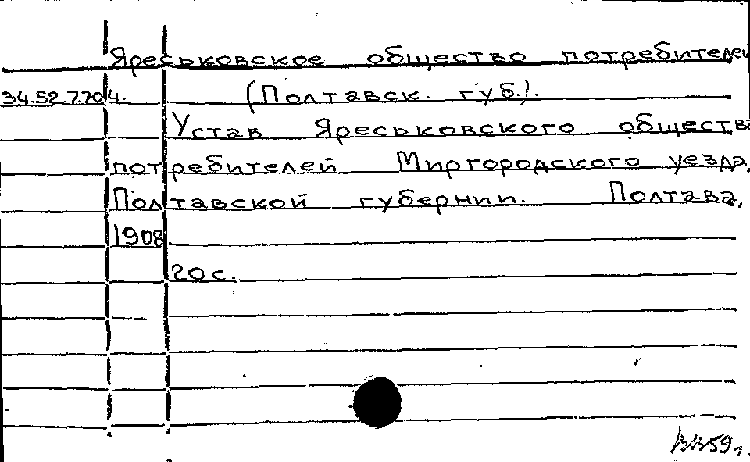 Яреськовское общество потребителей
34.52.7.704. (Полтавск. губ.).
Устав Яреськовского общества
потребителей Миргородского уезда,
Полтавской губернии. Полтава,
1908
20 с.